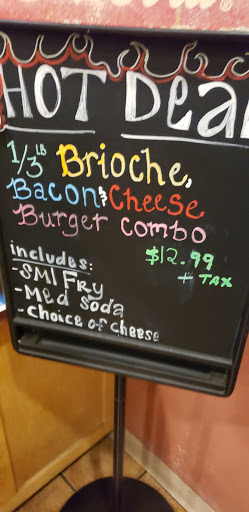 HOT Deal
1/3 LB Brioche,
Bacon & Cheese
Burger combo
$12.99
+ TAX
includes:
- SMl FRY
- Med soda
- choice of cheese